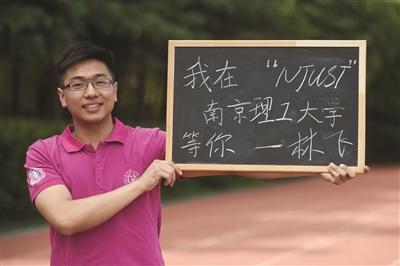 我在“NJUST”
南京理工大学
等你 — 林飞